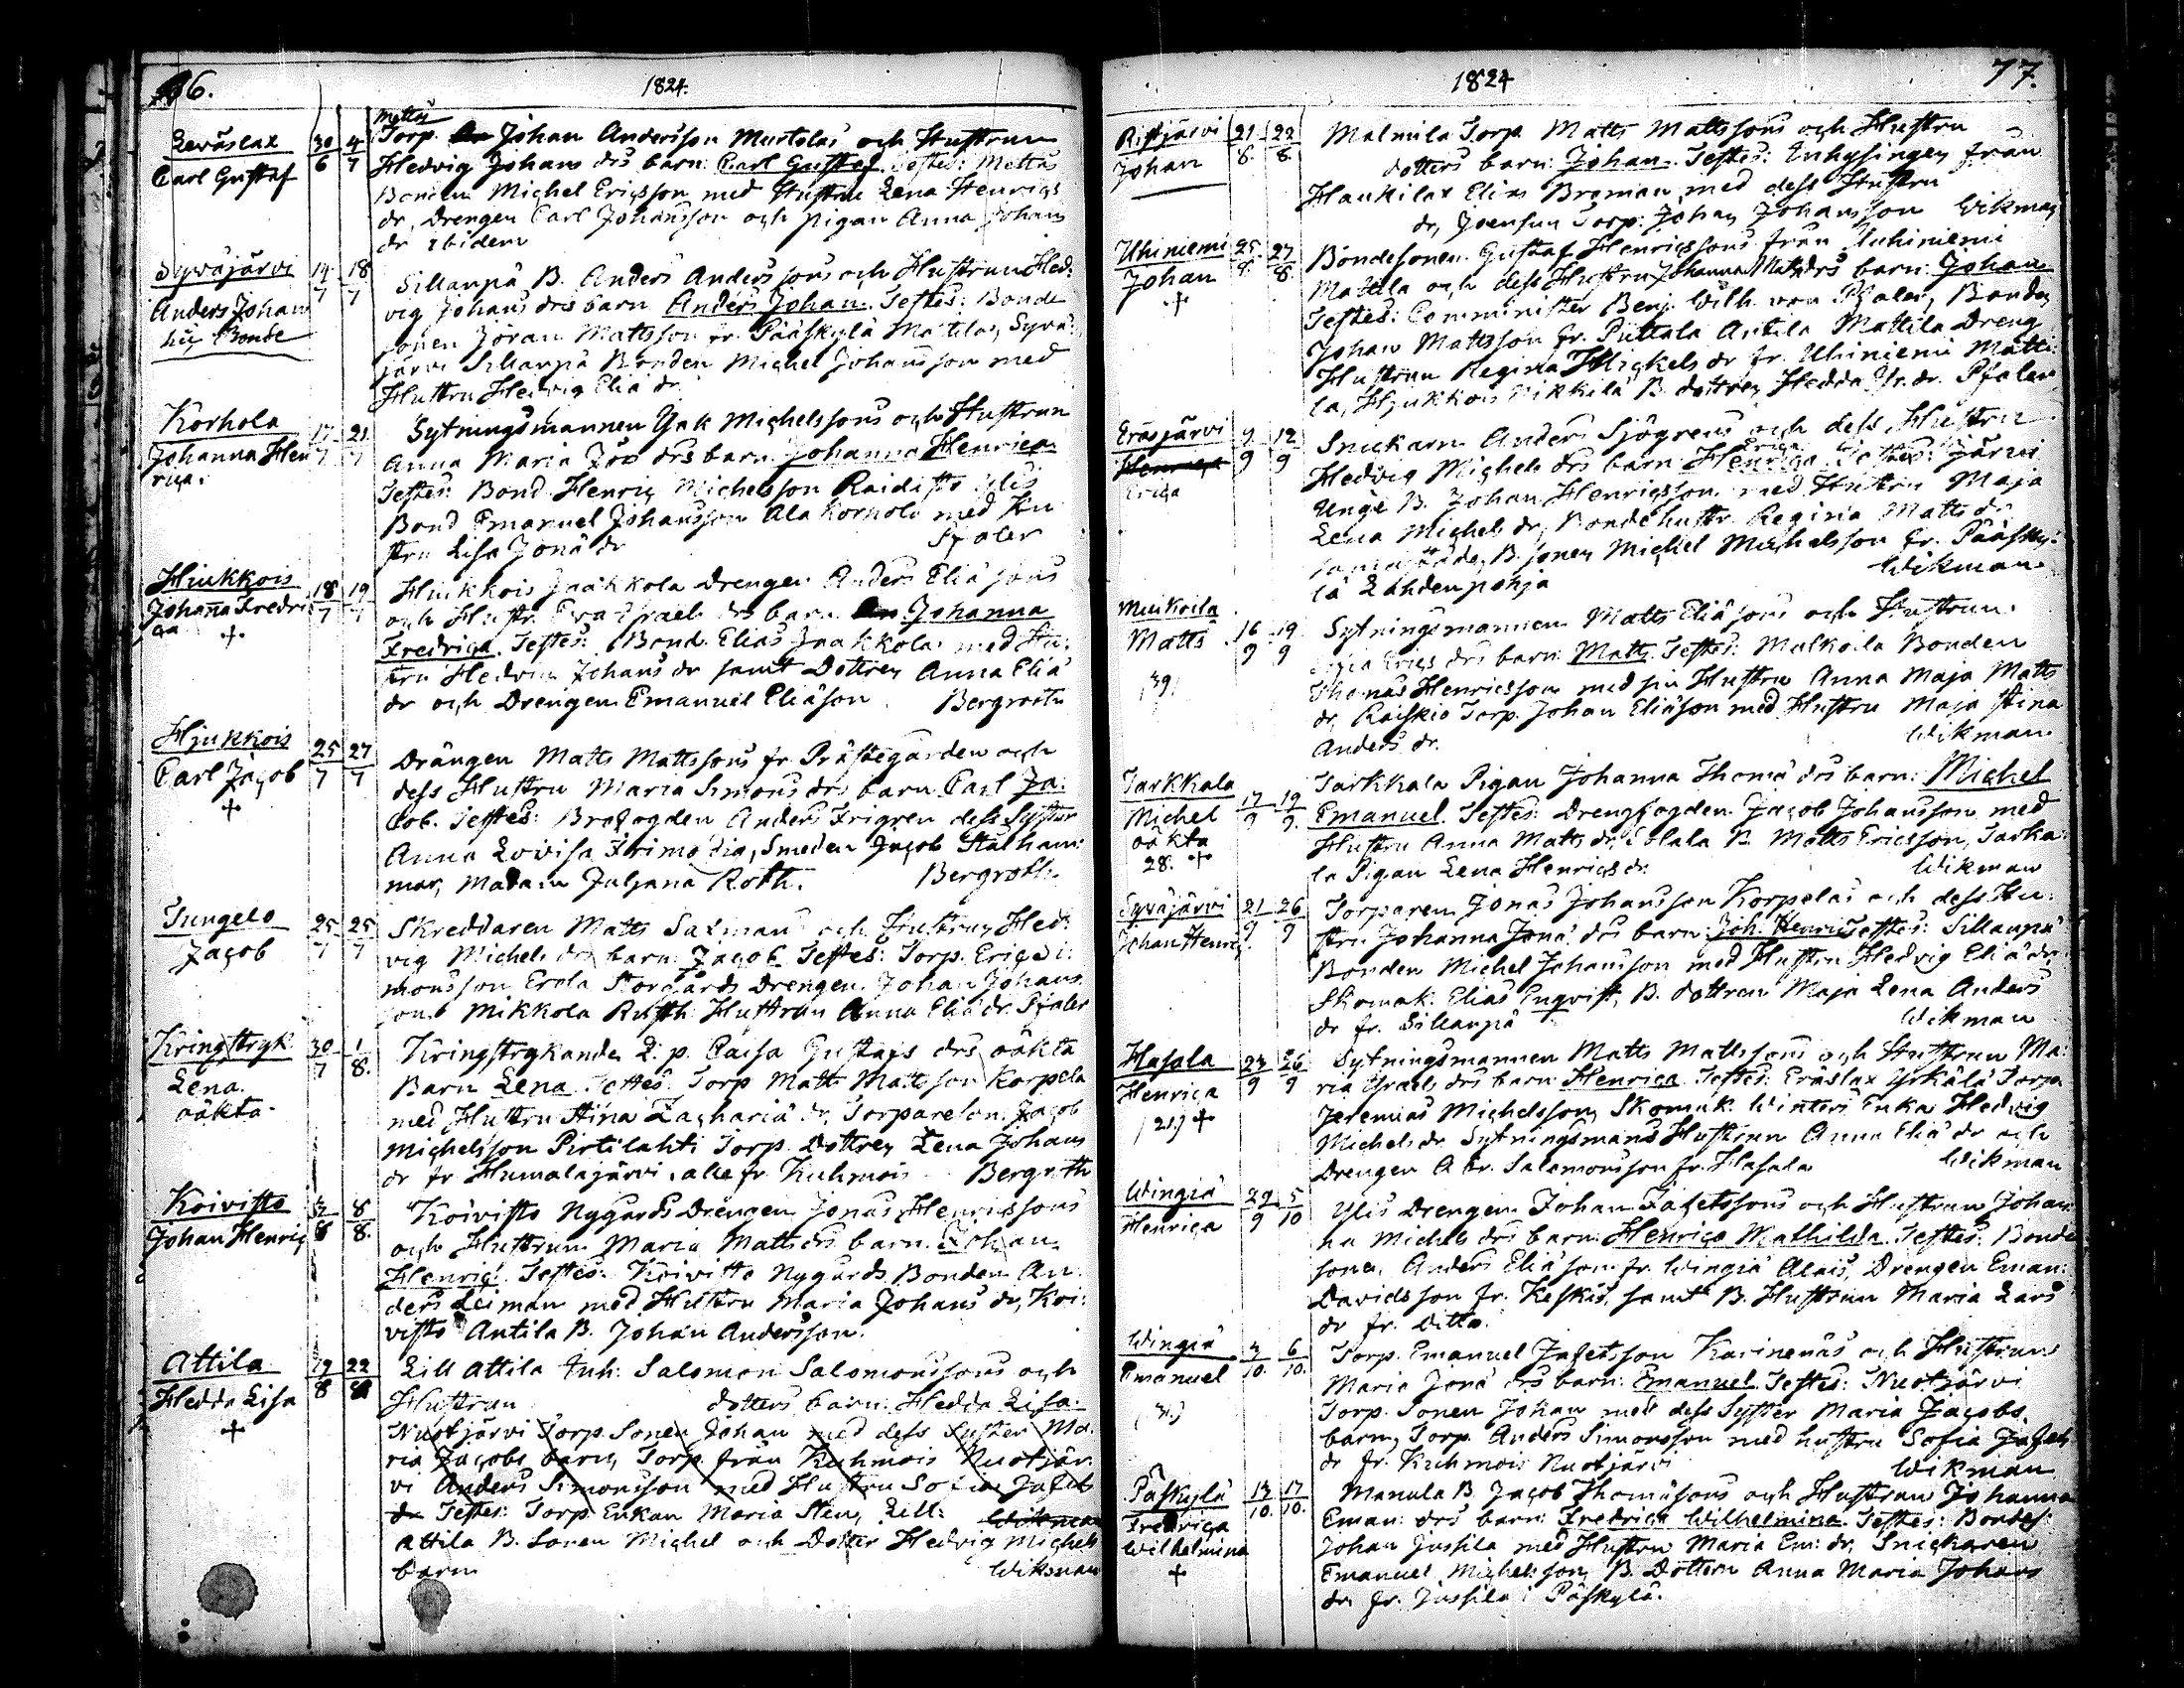 96.
1824.
Lewäslax 30/6 4/7
Carl Gustaf
Mattus
Torp. Johan Andersson Murtolas och Hustrun
Hedvig Johans drs barn: Carl Gustaf. Testes: Mattus
Bonden Michel Ericsson med Hustru Lena Henrics
dr, Drengen Carl Johansson och pigan Anna Johans
dr ibidem
Syväjärvi 14/7 18/7
Anders Johan
Bonde
Sillanpä B. Anders Anderssons och Hustrun Hed:
vig Johans drs barn Anders Johan. Testes: Bonde
sonen Jöran Mattsson fr. Pääskylä Mattila, Syvä:
järvi Sillanpä Bonden Michel Johansson med
Hustru Hedvig Eliä dr
Korhola 17/7 21/7
Johanna Hen
rica.
Sytningsmannen Isak Michelssons och Hustrun
Anna Maria drs barn Johanna Henrica
Testes: Bond. Henric Michelsson Raidisto Ylis
Bond Emanuel Johansson Ala Korhola med Hu
stru Lisa Jonä dr Pfaler
Hiukkois 18/7 19/7
Johanna Fredri
ca +
Hiukkois Jaakkola Drengen Anders Eliä sons
och Hustr. Eva Israels drs barn Johanna
Fredrica. Testes: Bond. Elias Jaakkola med Hu:
stru Hedvig Johans dr samt Dottren Anna Eliä
dr och Drengen Emanuel Eliäson. Bergroth
Hjukkois 25/7 27/7
Carl Jacob
+
Drängen Matts Mattssons fr Prästegården och
dess Hustru Maria Simons drs barn Carl Ja:
cob. Testes: Brofogden Anders Frigren dess Syster
Anna Lovisa Frimodig, Smeden Jacob Stålham:
mar, Madam Juljana Roth. Bergroth
Tungelo 25/7 25/7
Jacob
Skreddaren Matts Saxmans och Hustrun Hed:
vig Michels drs barn: Jacob Testes: Torp. Eric Si:
monsson Erola Storgårds Drengen Johan Johans
son Mikkola Rusth. Hustrun Anna Eliä dr. Pfaler
Kringstryk. 30/7 1/8.
Lena.
oäkta.
Kringstrykande L. p. Caisa Gustafs drs oäkta
Barn Lena Testes: Torp Matts Mattsson Korpela
med Hustru Stina Zachariä dr, Torpareson Jacob
Michelsson Pirtilahti Torp. Dottren Lena Johans
dr fr Humalajärvi, alle fr. Kuhmois Bergroth
Koivisto 8/8.
Johan Henric
Koivisto Nygårds Drengen Jonas Henricssons
och Hustrun Maria Matts drs barn. Johan
Henric. Testes: Koivisto Nygårds Bonden An
ders Leiman med Hustru Maria Johans dr, Koi:
visto Antila B. Johan Andersson.
Attila 19/8 22/8
Hedda Lisa
+
Lill Attila Inh: Salomon Salomonssons och
Hustrun dotters barn: Hedda Lisa.
Nuotjärvi Torp. Sonen Johan med dess Syster Ma:
ria Jacobs barn, Torp. från Kuhmois Nuotjär
vi Anders Simonsson med Hustru Sofia Jafets
dr Testes: Torp. Enkan Maria Sten, Lill: Wikman
Attila B. Sonen Michel och Dotter Hedvig Michels
barn Wikman
1824
77.
Ristjärvi 21/8. 22/8
Johan
Malmila Torp. Matts Mattssons och Hustru
dotters barn: Johan. Testes: Inhysingen från
Haukilax Elias Broman med dess Hustru
dr, Joensuu Torp. Johan Johansson Wikman
Uhiniemi 25/8. 27/8
Johan
+
Bondesonen Gustaf Henricssons från Uuhiniemi
Mattila och dess Hustru Johanna Matts drs barn: Johan
Testes: Comminister Benj. Wilh. von Pfaler, Bonden
Johan Mattsson fr. Puttala Antila Mattila Dreng
Hustrun Regina Mickels dr fr. Uhiniemi Matti:
la, Hjukkois Nikkilä B. dottren Hedda Pfaler
Eräsjärvi 9/9 12/9
Henrica
Erica
Snickarn Anders Sjögrens och dess Hustru
Hedvig Michels drs barn: Henrica Erica Testes: Järvi
Unge B. Johan Henricsson med Hustru Maja
Lena Michels dr, Bondehustr. Regina Matts dr
B. sonen Michel Michelsson fr. Pääsky:
lä Lahdenpohja Wikman.
Muikoila 16/9 19/9
Matts
Sytningsmannen Matts Eliä sons och Hustrun
Erics drs barn: Matts. Testes: Muikoila Bonden
Thomas Henricsson med sin Hustru Anna Maja Matts
dr, Räiskiö Torp. Johan Eliäson med Hustru Maja Stina
Anders dr. Wikman.
Tarkkala 17/9 19/9.
Michel
oäkta
28. +
Tarkkala Pigan Johanna Thomä drs barn: Michel
Emanuel. Testes: Drengfogden Jacob Johansson med
Hustru Anna Matts dr, B. Matts Ericsson, Tarka
la Pigan Lena Henrics dr Wikman
Syväjärvi 21/9 26/9
Johan Henric
Torparen Jonas Johansson Korpelas och dess Hu:
stru Johanna Jonä drs barn Joh. Henric Testes: Sillanpä
Bonden Michel Johansson med Hustru Hedvig Eliä dr,
Skomak. Elias Enqvist, B. dottren Maja Lena Anders
dr fr. Sillanpä Wikman
Hasala 24/9 26/9
Henrica
(21) +
Sytningsmannen Matts Mattssons och Hustrun Ma:
ria Israels drs barn: Henrica. Testes: Eräslax Yrkälä Torp.
Jeremias Michelsson, Skomak. Winters Enka Hedvig
Michels dr Sytningsmans Hustrun Anna Eliä dr och
Drengen Abr. Salomonsson fr. Hasala Wikman
Wingiä 29/9 5/10
Henrica
Ylis Drengen Johan Jafetssons och Hustrun Johan
na Michels drs barn: Henrica Mathilda. Testes: Bonde
sonen Anders Eliä son fr. Wingiä Alais, Drengen Eman:
Davidsson fr. Keskis, samt B. Hustrun Maria Lars
dr fr. Ditto.
Wingiä 4/10. 6/10.
Emanuel
Torp. Emanuel Jafetsson Kavinenäs och Hustrun
Maria Jonä drs barn: Emanuel. Testes: Nuotjärvi
Torp. Sonen Johan med dess Syster Maria Jacobs
barn, Torp. Anders Simonsson med hustru Sofia Jafets
dr fr. Kuhmois Nuotjärvi Wikman
Päskylä 14/10. 17/10.
Fredrica
Wilhelmina
+
Manula B. Jacob Thomäsons och Hustrun Johanna
Eman: drs barn: Fredrica Wilhelmina Testes: Bondes:
Johan Jussila med Hustru Maria Em: dr, Snickaren
Emanuel Michelsson, B. Dottern Anna Maria Johans
dr fr. Jussila i Päskylä.